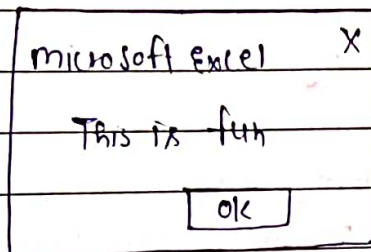 microsoft Excel X
This is fun
OK